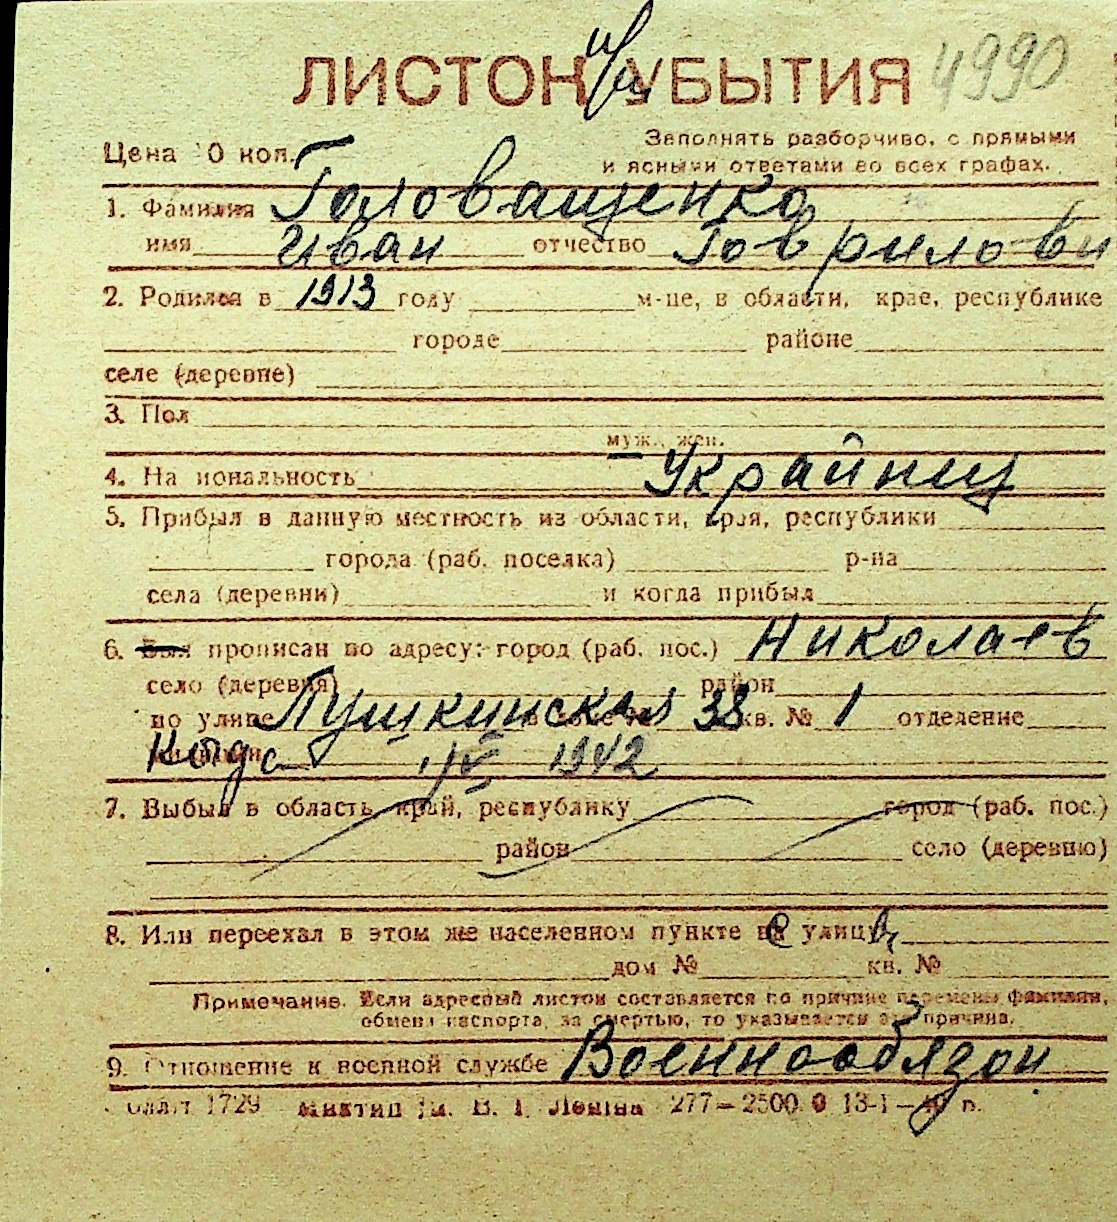 ЛИСТОК УБЫТИЯ 4990
Цена 0 коп. Заполнять разборчиво, с прямыми
и ясными ответами во всех графах.
1. Фамилия Головащенко
имя Иван отчество Говрилови
2. Родился в 1913 году м-це, в области, крае, республике
городе районе
селе (деревне)
3. Пол
муж., жен.
4. На иональность Украйнец
5. Прибыл в данную местность из области, края, республики
города (раб. поселка) р-на
села (деревни) и когда прибыл
6. Был прописан по адресу: город (раб. пос.) Николаев
село (деревня) район
по улице Пушкинская 38 кв. № 1 отделение
Когда 1942
7. Выбыл в область, край, республику город (раб. пос.)
район село (деревню)
8. Или переехал в этом же населенном пункте на улицу
дом № кв. №
Примечание. Если адресный листок составляется по причине перемены фамилии,
обмена паспорта, за смертью, то указывается эта причина.
9. Отношение к военной службе Военнообязон
1729 В. І. Леніна 277—2500 0 13-1—